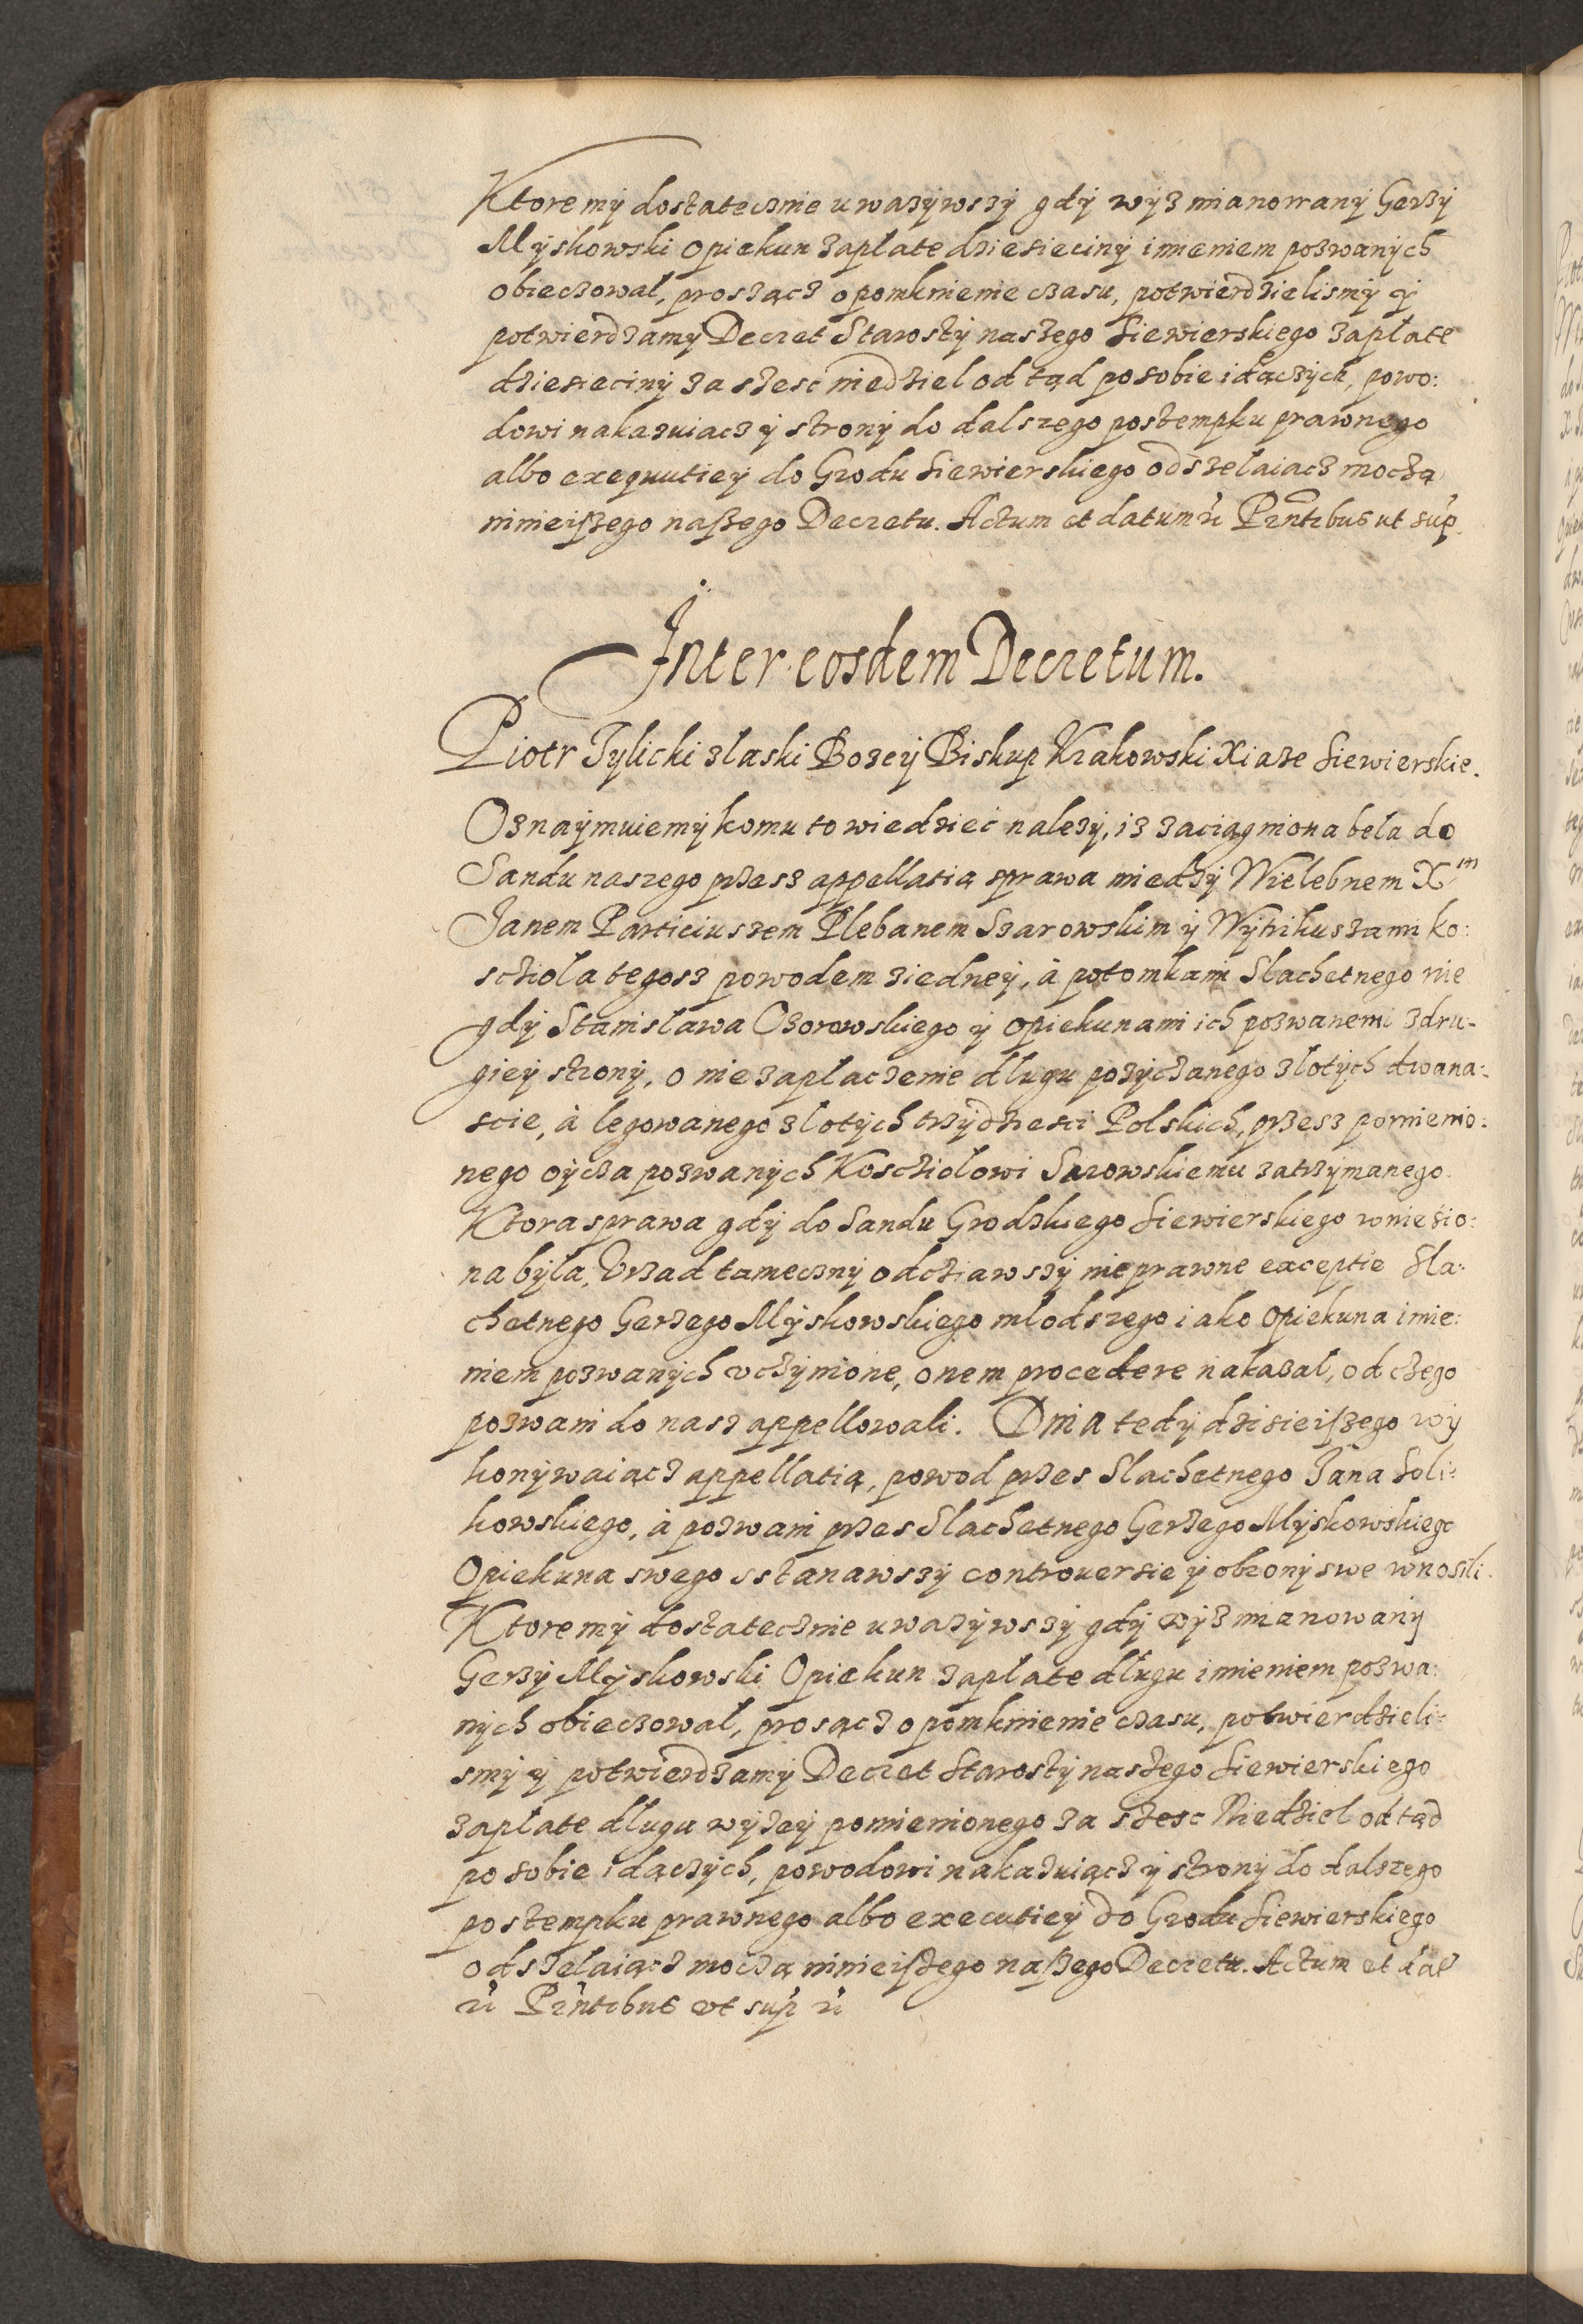 Ktore my dostatecznie uwazÿwszÿ gdÿ wÿz mianowanÿ Gerzÿ
Mÿskowski opiekun zaplate dziesiecinÿ imieniem pozwanÿch
obieczowal, proszącz o pomknienie czasu, potwierdzielismÿ ÿ
potwierdzamy Decret Starostÿ naszego Siewierskiego zaplate
dziesiecinÿ za szesc niedziel od tąd po sobie idączÿch, powo:
dowi nakazuiacz ÿ stronÿ do dalszego postempku prawnego
albo exequutieÿ do Grodu Siewierskiego odszelaiacz moczą
ninieiszego naszego Decretu. Actum et datum ut Pñtibus ut sup.
Inter eosdem Decretum.
Piotr Tylicki zlaski Bozeÿ Biskup Krakowski Xiaze Siewierskie.
Oznaÿmuiemÿ komu to wiedziec nalezÿ, iz zaciągniona bela do
Sandu naszego przesz appellatią sprawa miedzÿ Wielebnem X<sup>m</sup>
Janem Particiuszem Plebanem Szarowskim ÿ Wÿtrikuszami ko:
sciola tegosz powodem ziedneÿ, à potomkami Slachetnego nie
gdÿ Stanislawa Ozorowskiego ÿ opiekunami ich pozwanemi zdru-
gieÿ stronÿ, o niezaplaczenie dlugu pozÿczanego zlotÿch dwana:
scie, à legowanego zlotÿch trzÿdziesci Polskich, przesz pomienio:
nego oÿcza pozwanÿch Kosciolowi Sarowskiemu zatrzÿmanego.
Ktora sprawa gdÿ do Sandu Grodzkiego Siewierskiego wniesio:
na bÿla, Vrzad tamecznÿ odciawszÿ nieprawne exceptie Sla:
chetnego Gerzego Mÿskowskiego mlodszego iako Opiekuna imie:
niem pozwanÿch vczÿnione, onem procedere nakazal, od czego
pozwani do nasz appellowali. Dnia tedÿ dzisieiszego wÿ
konÿwaiącz appellatią, powod przes Slachetnego Jana Soli:
kowskiego, à pozwani przes Slachetnego Gerzego Mÿskowskiego
Opiekuna swego sstanawszÿ controuersie ÿ obronÿ swe wnosili.
Ktore mÿ dostatecznie uwazÿwszÿ gdÿ wÿz mianowanÿ
Gerzÿ Mÿskowski Opiekun zaplate dlugu imieniem pozwa:
nÿch obieczowal, prosącz o pomknienie czasu, potwierdzieli:
smÿ ÿ potwierdzamÿ Decret Starostÿ naszego Siewierskiego
zaplate dlugu wÿzeÿ pomienionego za szesc Niedziel od tąd
po sobie idączÿch, powodowi nakazuiącz ÿ stronÿ do dalszego
postempku prawnego albo executieÿ do Grodu Siewierskiego
odszelaiącz moczą ninieiszego naszego Decretu. Actum et dat
ut Pñtibus vt sup ut